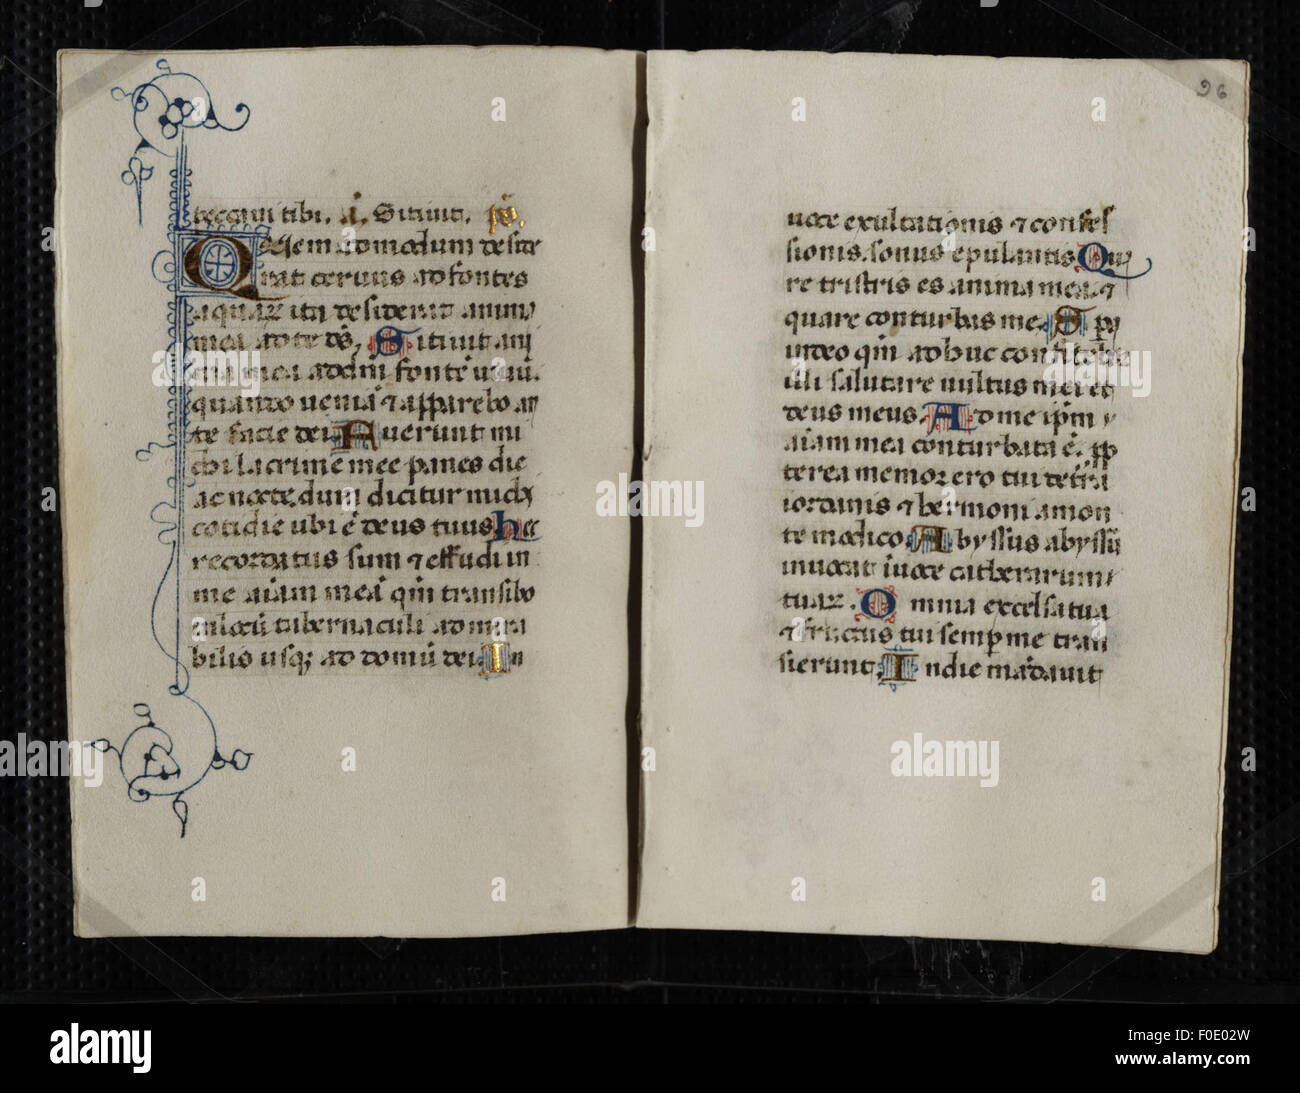 peccaui tibi. a. Sitiuit. ps.
Quesem admodum deside
rat ceruus ad fontes
aquaꝝ ita desiderat anima
mea ad te ds̄. Sitiuit ani
ma mea ad dm̄ fontē uiuū.
quando ueniā ⁊ apparebo an
te faciē dei. Fuerunt mi
chi lacrime mee panes die
ac nocte, dum dicitur michi
cotidie ubi ē deus tuus. hec
recordatus sum ⁊ effudi in
me aīam meā qm̄ transibo
in locū tabernaculi admira
bilis usqꝫ ad domū dei. In
96
uoce exultationis ⁊ confes
sionis. sonus epulantis. Qua
re tristis es anima mea. ⁊
quare conturbas me. Spa
in deo qm̄ adhuc confitebor
illi salutare uultus mei et
deus meus. Ad me ipm̄
aīam mea conturbata ē. pp
terea memor ero tui de trā
iordanis ⁊ hermoni a mon
te modico. Abyssus abyssū
inuocat ī uoce catherarum
tuaꝝ. Omnia excelsa tua
⁊ fluctus tui semp me tran
sierunt. In die mādauit
alamy
alamy stock photo
F0E02W
www.alamy.com